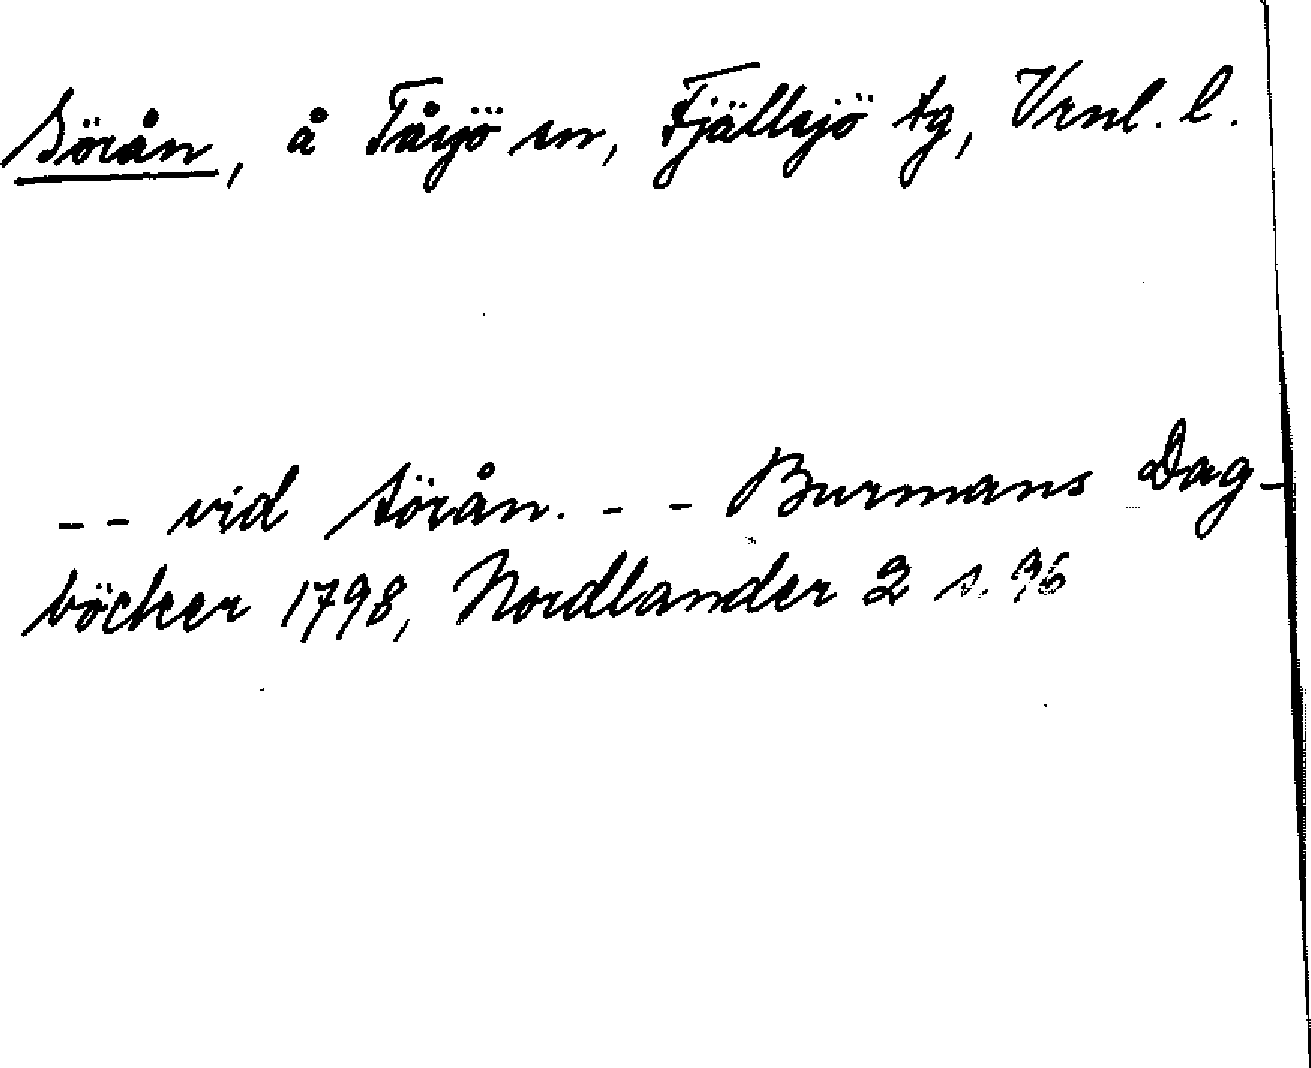 Sörån, å Tåsjö sn, Fjällsjö tg, Vrnl. l.
-- vid Sörån. -- Burmans Dag-
böcker 1798, Nordlander 2 s. 96